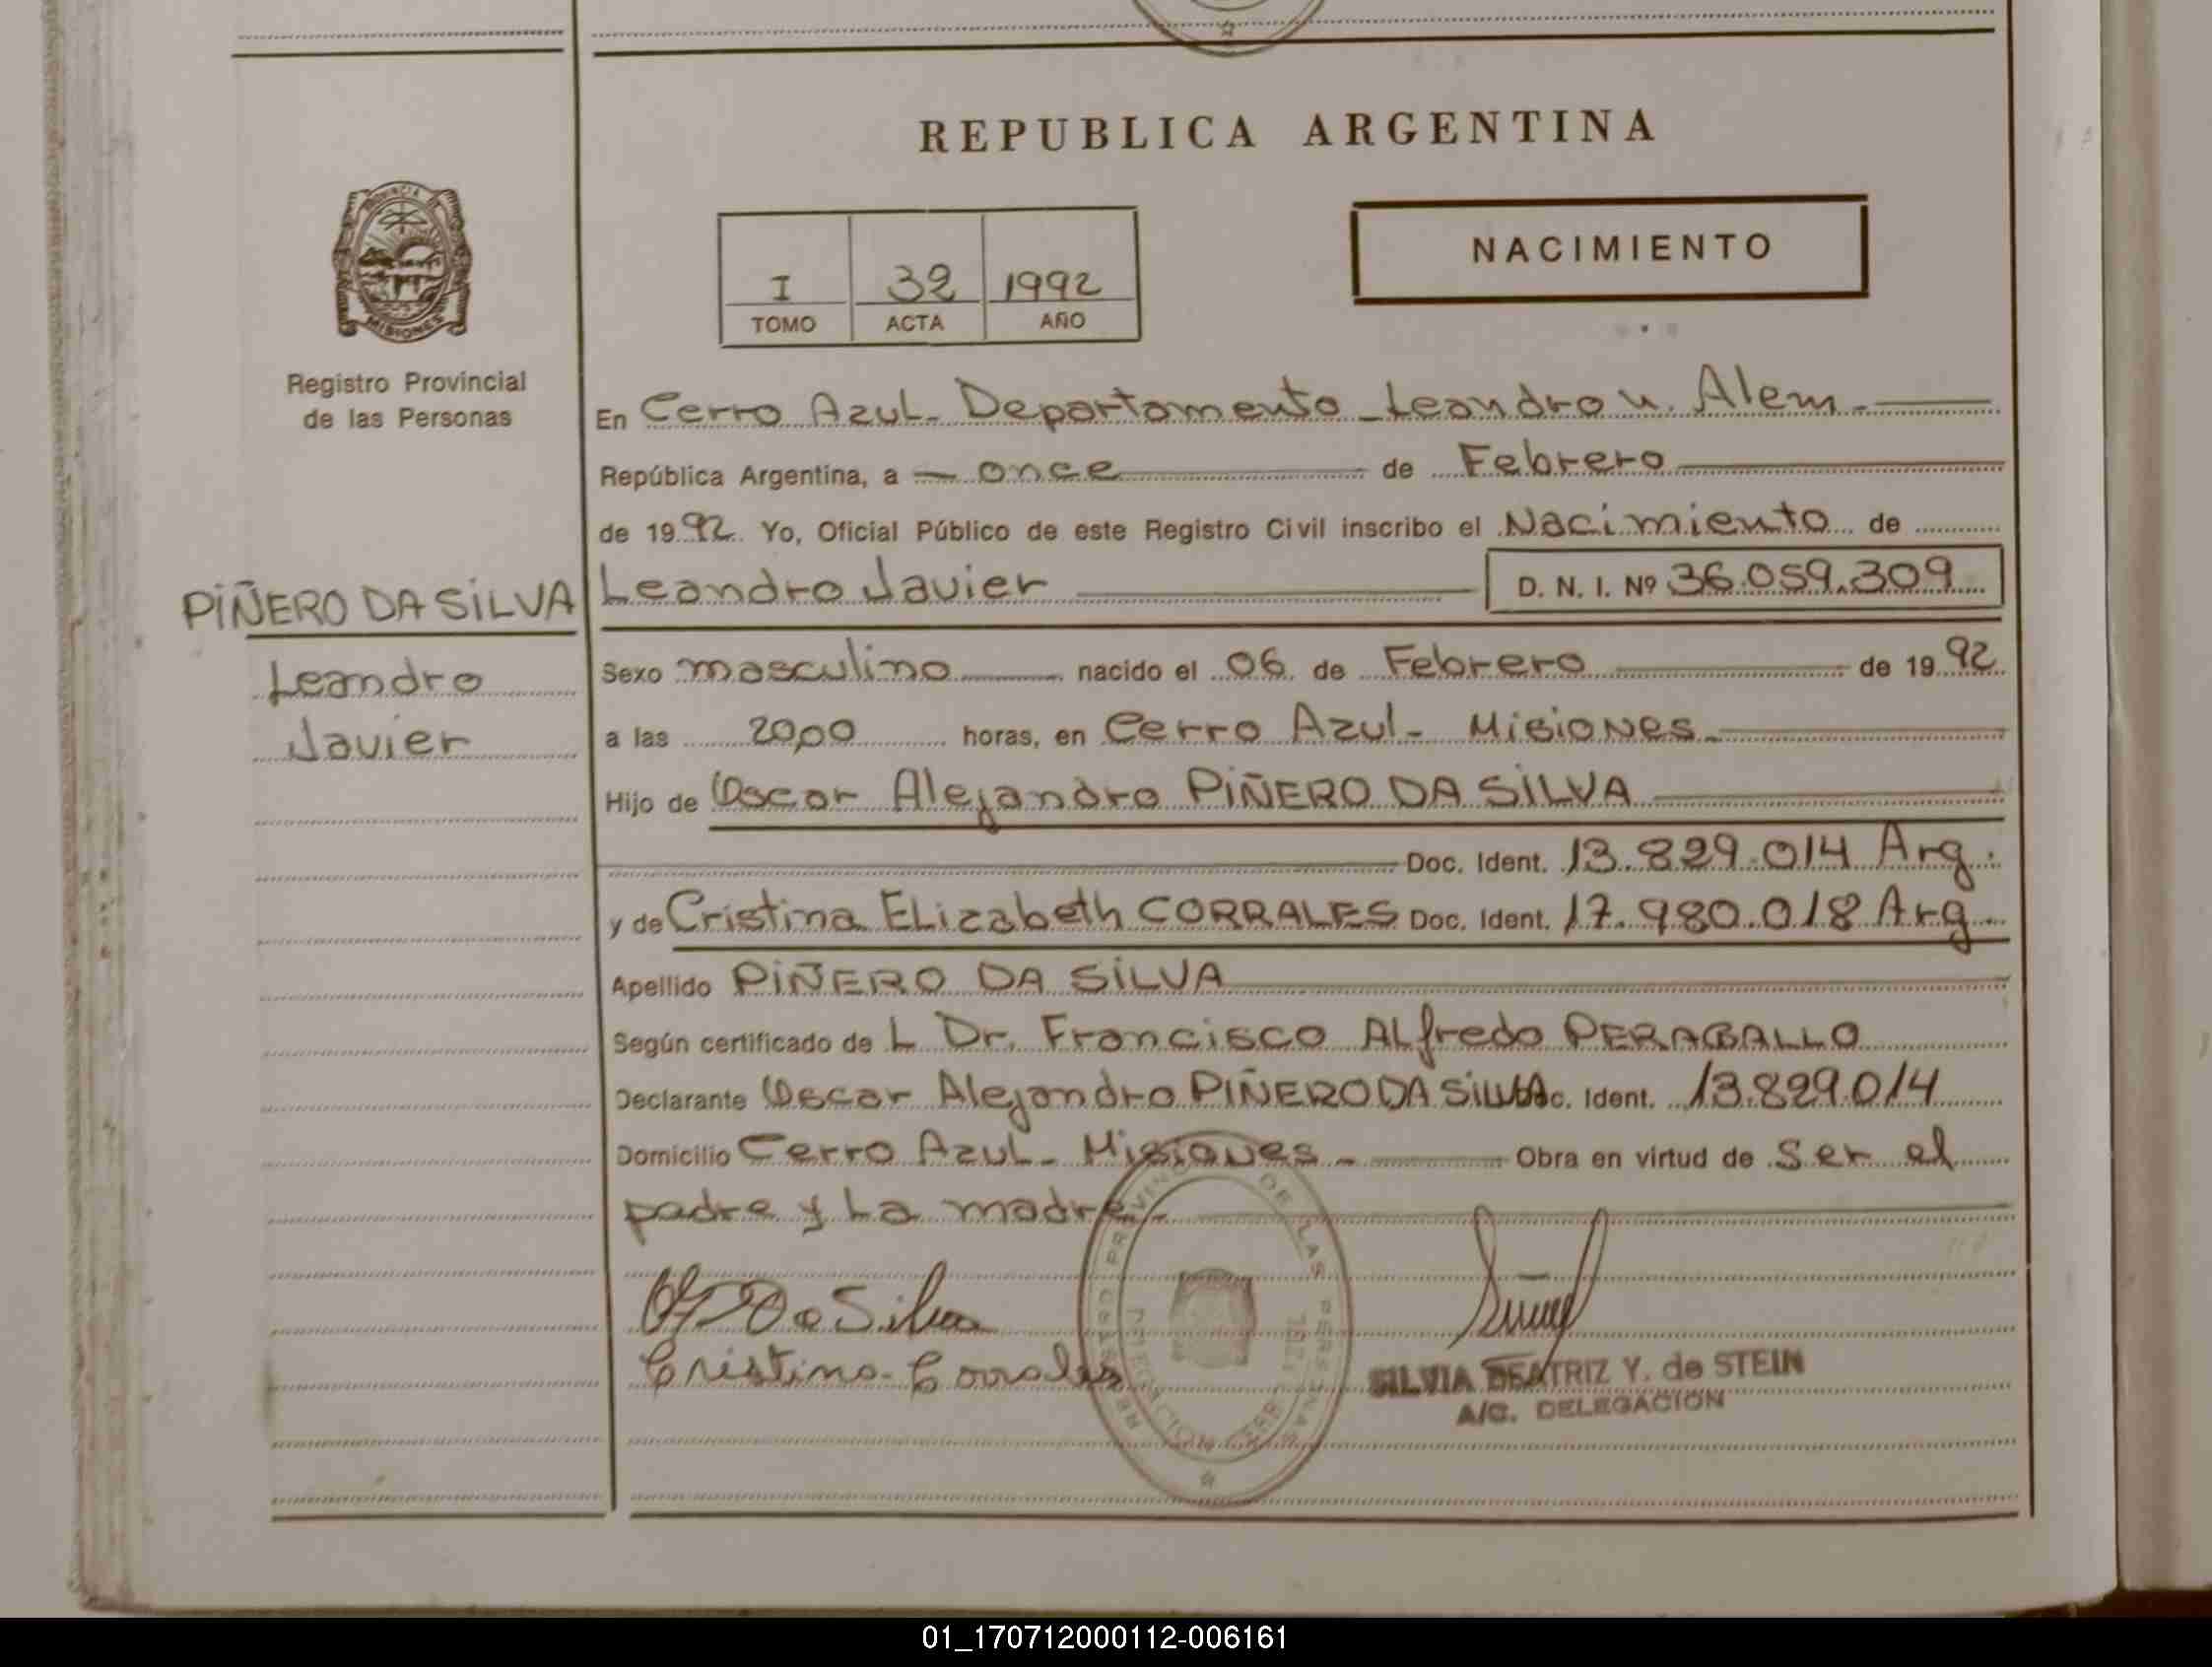 REPUBLICA ARGENTINA
NACIMIENTO
I 32 1992
TOMO ACTA AÑO
PROVINCIA DE
MISIONES
Registro Provincial
de las Personas
En Cerro Azul - Departamento - Leandro N. Alem -
República Argentina, a - once de Febrero
de 1992 Yo, Oficial Público de este Registro Civil inscribo el Nacimiento de
PIÑERO DA SILVA
Leandro Javier D. N. I. Nº 36.059.309
Leandro
Javier
Sexo masculino nacido el 06 de Febrero de 1992
a las 20,00 horas, en Cerro Azul - Misiones -
Hijo de Oscar Alejandro PIÑERO DA SILVA
Doc. Ident. 13.829.014 Arg.
y de Cristina ELizabeth CORRALES Doc. Ident. 17.980.018 Arg.
Apellido PIÑERO DA SILVA
Según certificado de L Dr. Francisco ALfredo PERABALLO
Declarante Oscar Alejandro PIÑERO DA SILVA Doc. Ident. 13.829.014
Domicilio Cerro Azul - Misiones - Obra en virtud de ser el
padre y La madre -
Da Silva
Cristina Corrales
REGISTRO PROVINCIAL DE LAS PERSONAS
DELEGACION CERRO AZUL
SILVIA BEATRIZ Y. de STEIN
A/C. DELEGACION
01_170712000112-006161